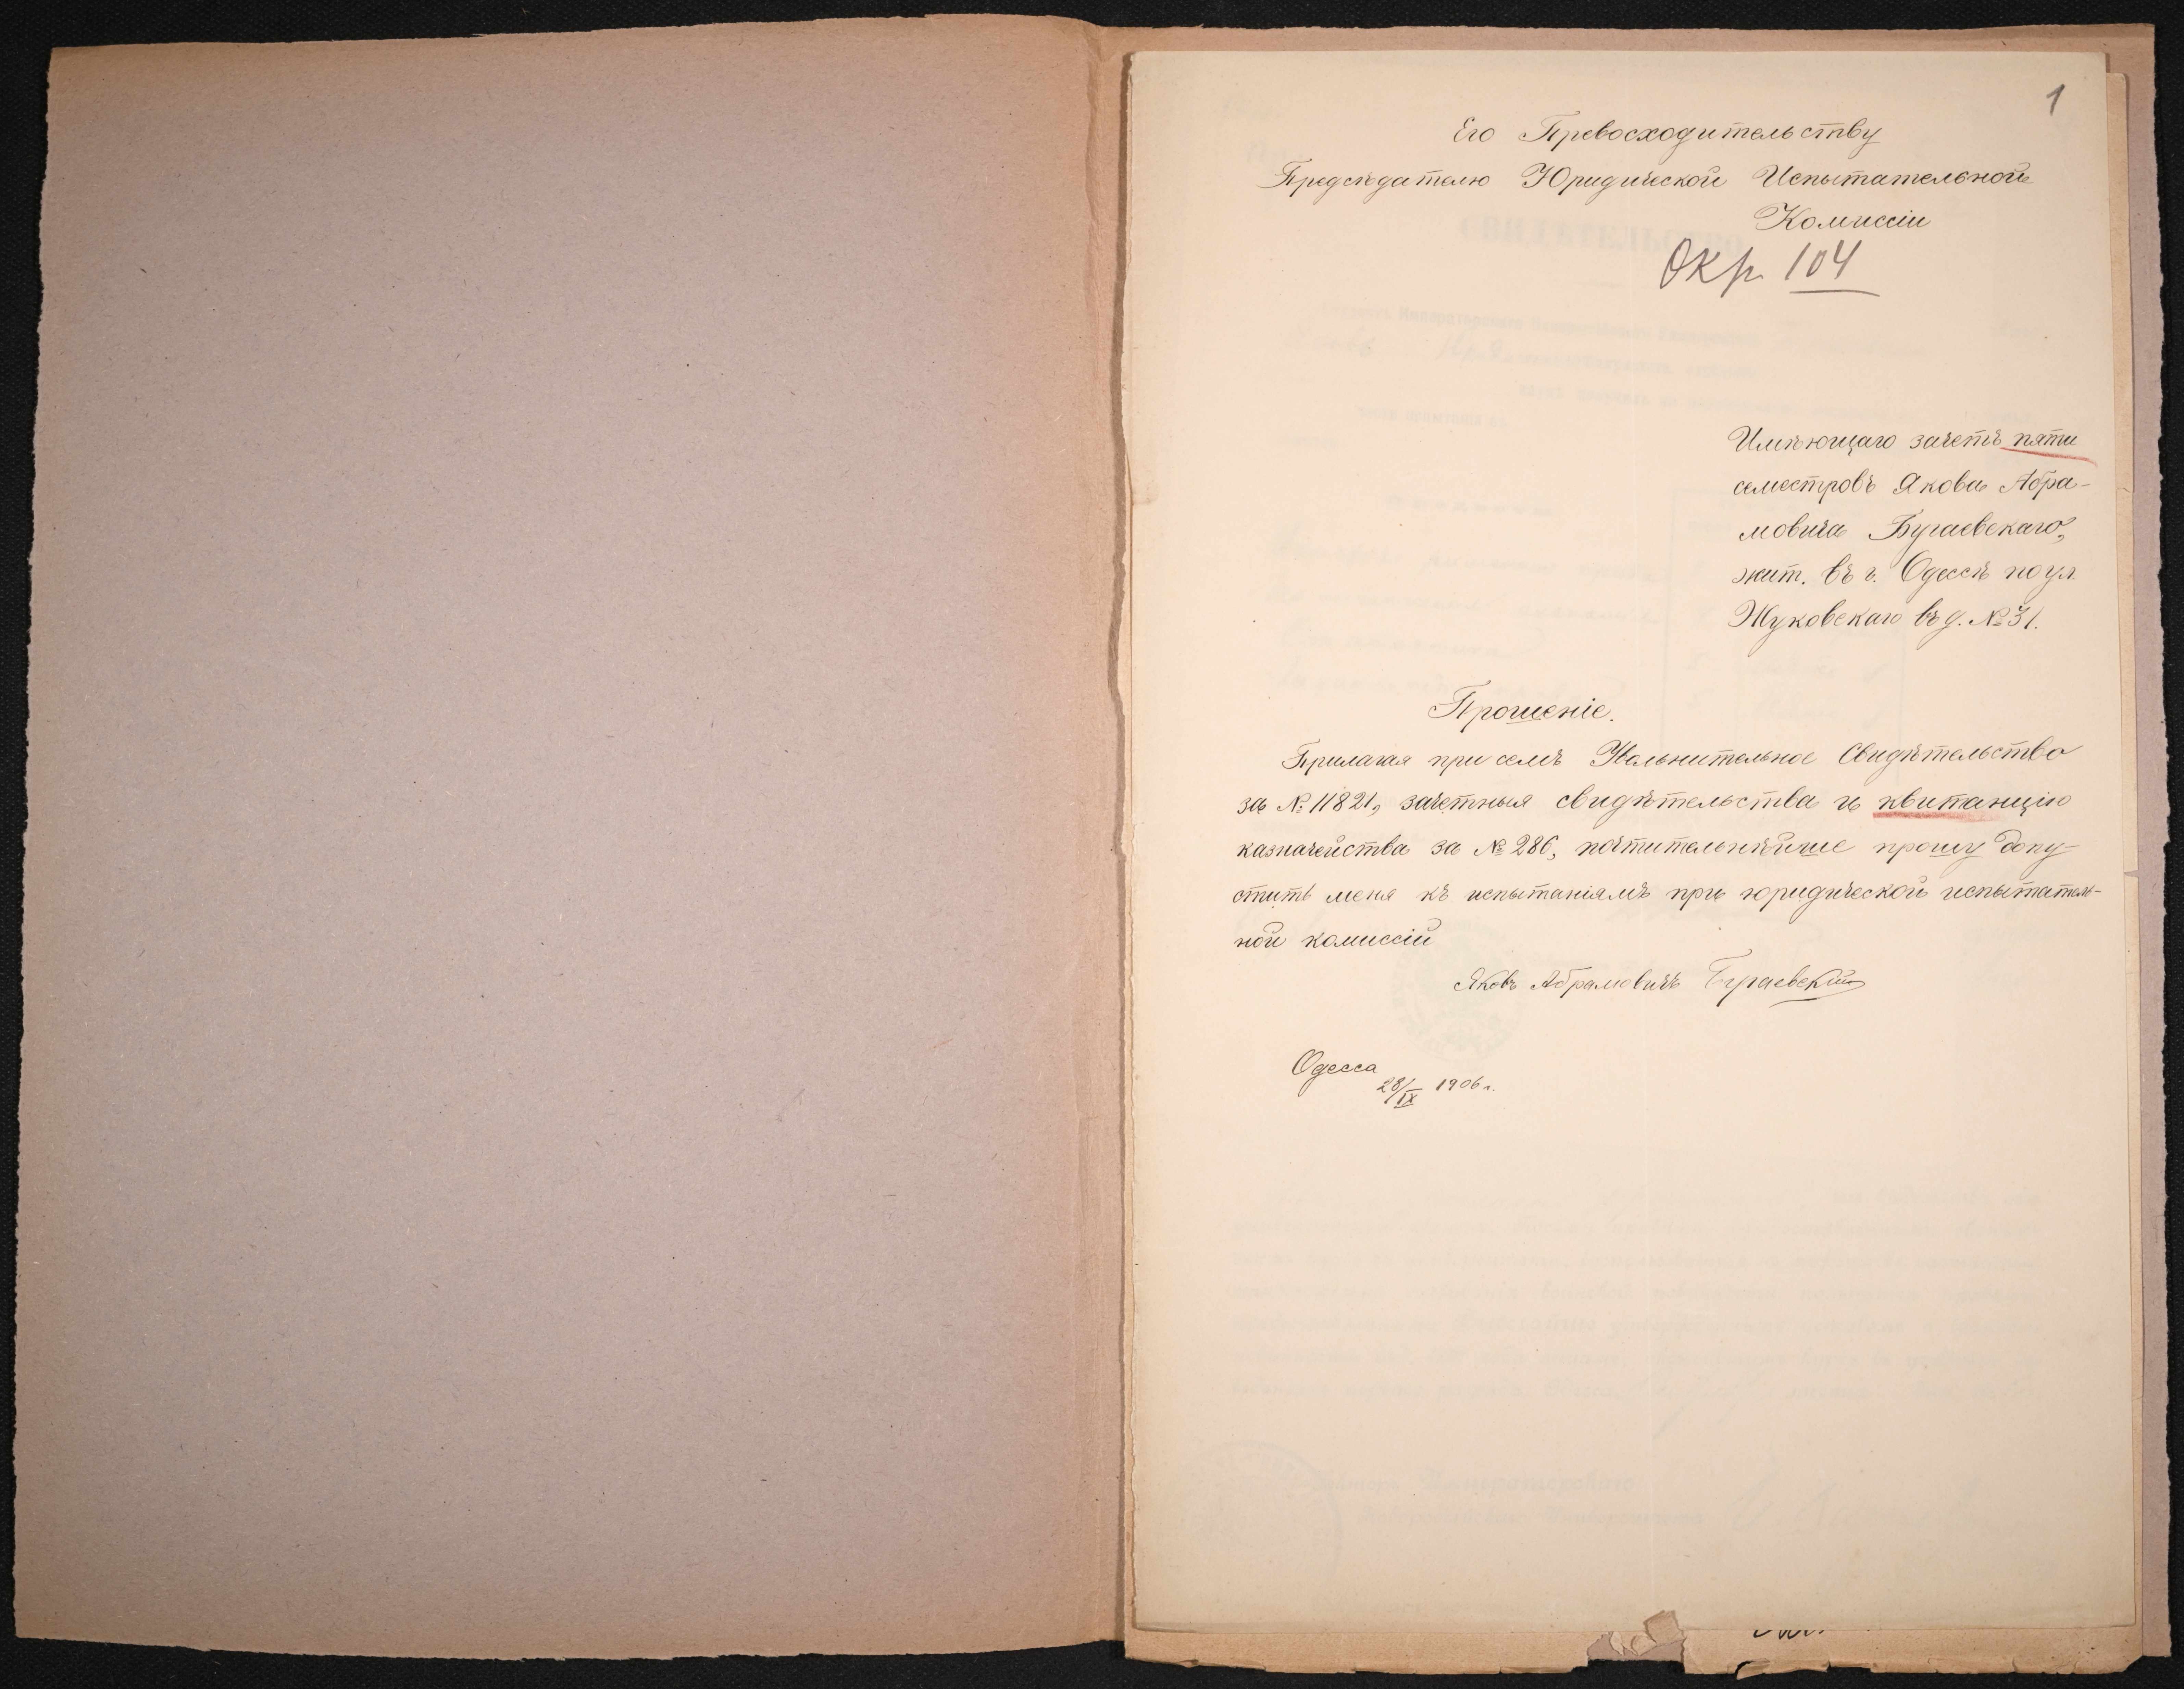 1
Его Превосходительству
Предсѣдателю Юридической Испытательной
Комиссіи
Окр 104
Имѣющаго зачетъ пяти
семестровъ Якова Абра-
мовича Бугаевскаго,
жит. въ г. Одессѣ по ул.
Жуковскаго въ д. № 31.
Прошеніе.
Прилагая при семъ Увольнительное Свидѣтельство
за № 11821, зачетныя свидѣтельства и квитанцію
казначейства за № 286, почтительнѣйше прошу допу-
стить меня къ испытаніямъ при юридической испытатель-
ной комиссіи
Яковъ Абрамовичъ Бугаевскій
Одесса
28/IX 1906 г.